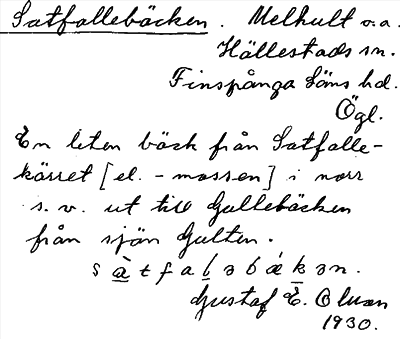 Satfallebäcken. Melhult o.a.
Hällestads sn.
Finspånga läns hd.
Ögl.
En liten bäck från Satfalle-
kärret [el. -mossen] i norr
s.v. ut till Gullebäcken
från sjön Gulten.
sàtfaləbákən.
Gustaf E.
1930.